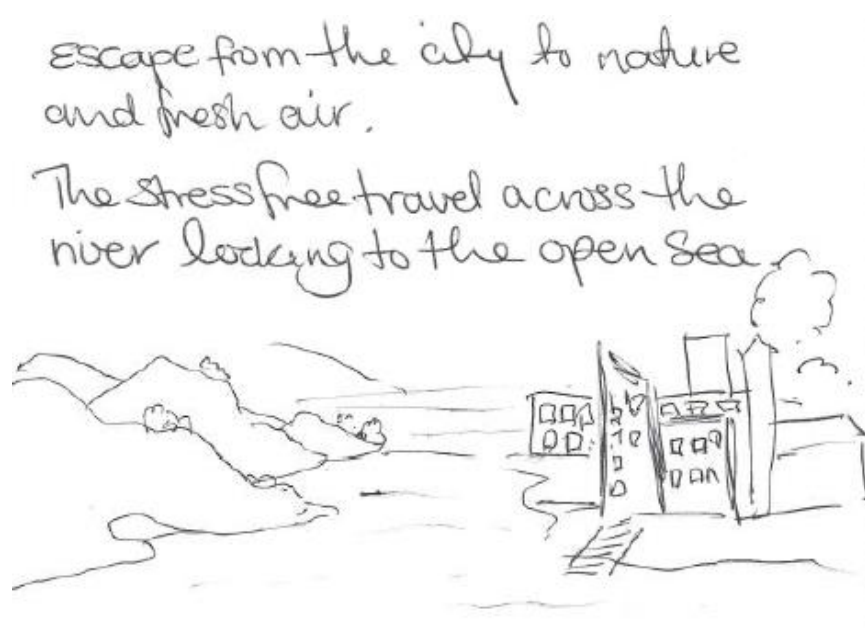 escape from the city to nature
and fresh air.
The stress free travel across the
river looking to the open sea.